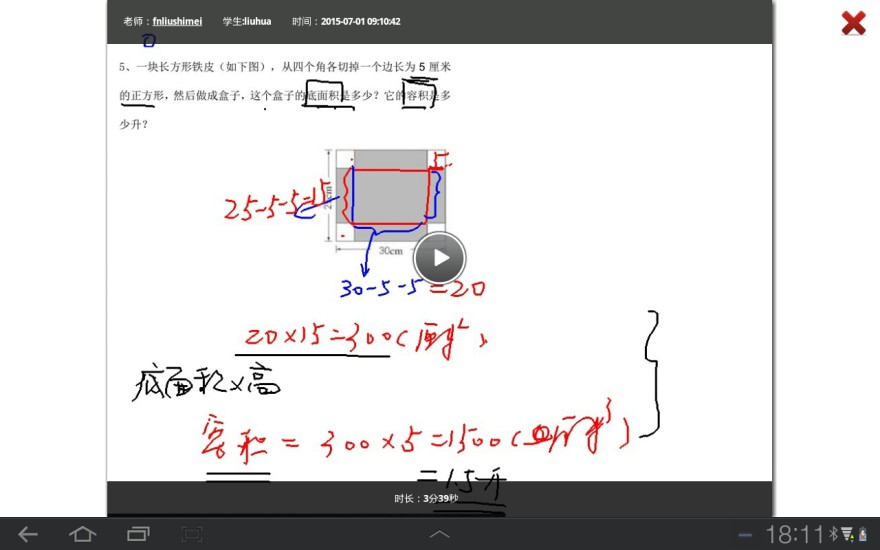 老师：fnliushimei 学生:liuhua 时间：2015-07-01 09:10:42
5、一块长方形铁皮（如下图），从四个角各切掉一个边长为 5 厘米
的正方形，然后做成盒子，这个盒子的底面积是多少？它的容积是多
少升？
5
25-5-5=15
cm
30cm
30-5-5=20
20×15=300(厘米²)
底面积×高
容积=300×5=1500(厘米³)
=1.5升
时长：3分39秒
18:11